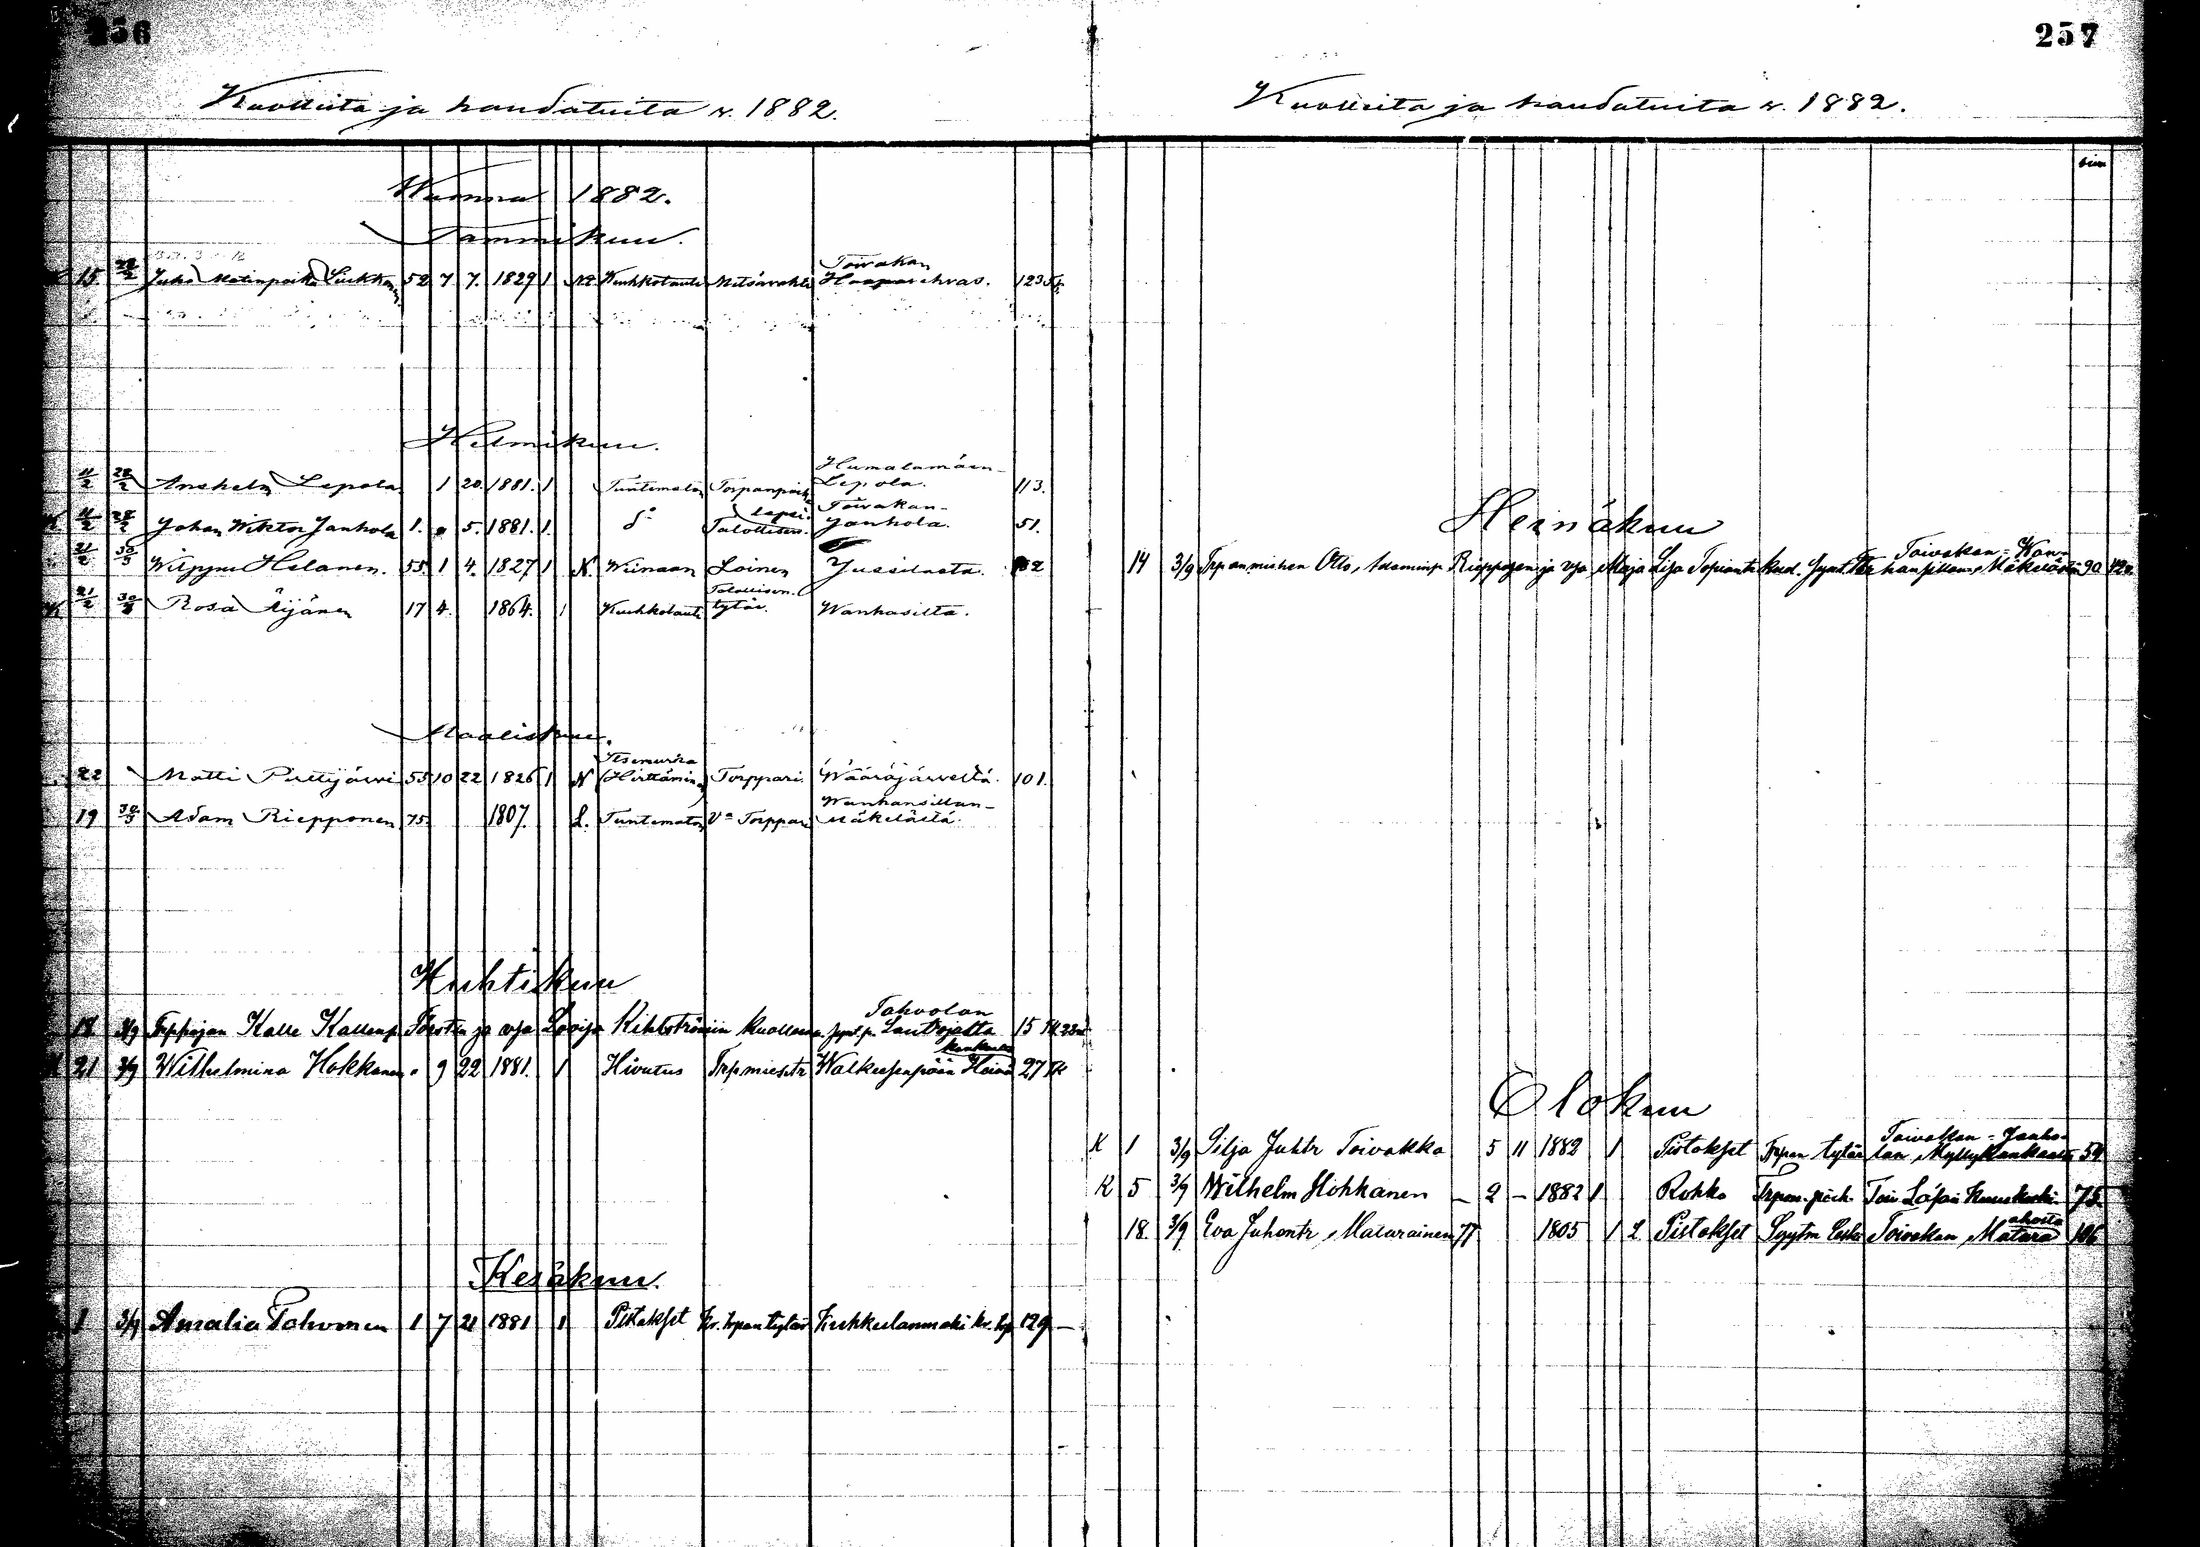 256
Kuolleita ja haudatuita v. 1882.
Wuonna 1882.
Tammikuu.
15. 28/2 Juho Matinpoika Liukkonen 52 7 7. 1829 1 N. Keuhkotauti Metsävahti Toivakan Haapasehvas. 123
Helmikuu.
11/2 28/2 Anshelm Lepola 1 20. 1881. 1 Tuntematon Torpanpoika Humalamäen Lepola. 113.
K 11/2 28/2 Johan Wiktor Janhola 1. " 5. 1881. 1. d:o Talollisen lapsi. Toivakan Janhola. 51.
21/2 30/3 Wilppu Helanen. 55. 1 4. 1827 1 N. Wiinaan Loinen Jussilasta. 82
K 21/2 30/3 Rosa Äijänen 17 4. 1864. 1 Keuhkotauti Talollisen tytär. Wanhasilta.
Maaliskuu.
22 Matti Puttijärvi 55 10 22 1826 1 N Itsemurha (Hirttäminen) Torppari Wääräjärveltä. 101.
19 30/3 Adam Riepponen 75. 1807. L. Tuntematon Va Torppari Wanhansillan Mäkelästä.
Huhtikuu
18. 3/9 Trppojan Kalle Kallenp. Törsten ja vja Loviisa Rihtströmiin kuollena synt. p. Tahvolan Lautojalta 15
K 21 3/9 Wilhelmina Hokkanen " 9 22 1881. 1 Hivutus Trp. miestr Walkeapään Heinä kankaalta 27 TK
Kesäkuu.
1 3/9 Amalia Pahvonen 1 7 21 1881 1 Pistokset Kr. trpan tytär Kuhkulanmäki kr. trp 129 —
257
Kuolleita ja haudatuita v. 1882.
Heinäkuu
14 3/9 Trpanmiehen Otto Adaminp. Riepposen ja vja Maja Lisa Topiantr kuol. synt. Tr Toivakan-Wanhansillan Mäkelästä 90
Elokuu
K 1 3/9 Silja Juhtr Toivakka 5 11 1882 1 Pistokset Trpan tytär Toivakan-Janholan Myllykankaalta 54
K 5 3/9 Wilhelm Hohkanen — 2 — 1882 1 Rohko Trpan poik. Toiv. Kuuskoski 75
18. 3/9 Eva Juhontr Matarainen 77 1805 1 L Pistokset Syytn leski Toivakan Matara aholta 106